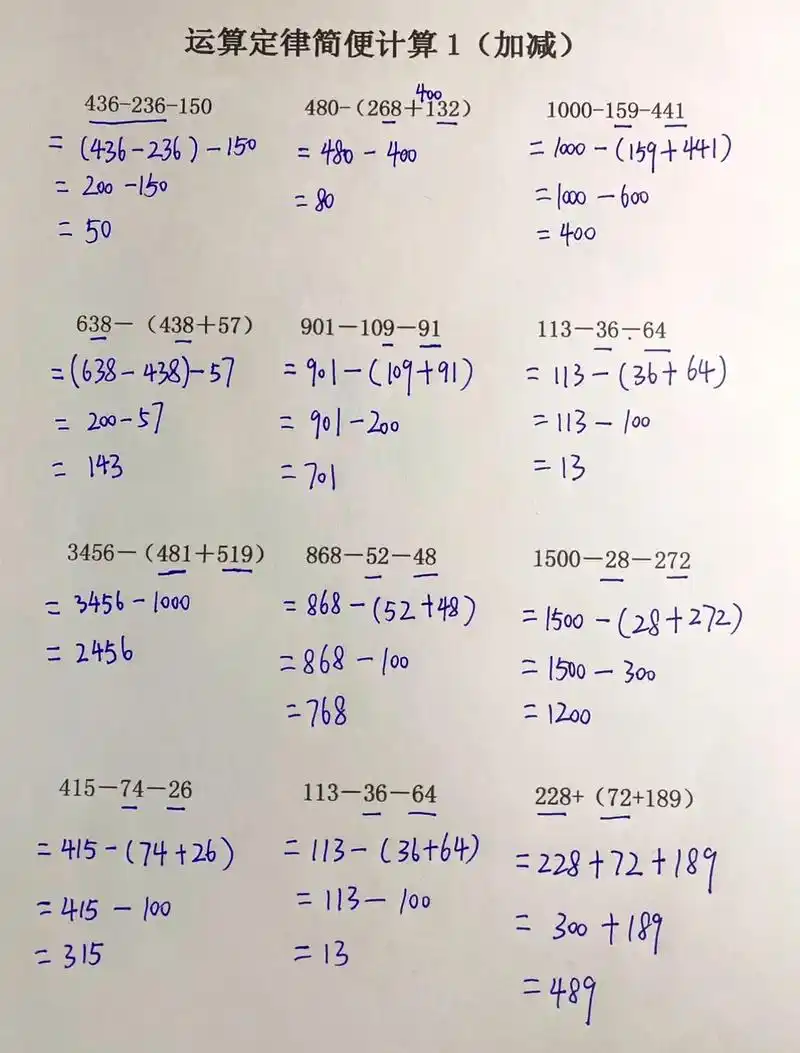 运算定律简便计算1（加减）
436-236-150
=(436-236)-150
=200-150
=50
400
480-（268＋132）
=480-400
=80
1000-159-441
=1000-(159+441)
=1000-600
=400
638－（438＋57）
=(638-438)-57
=200-57
=143
901－109－91
=901-(109+91)
=901-200
=701
113－36－64
=113-(36+64)
=113-100
=13
3456－（481＋519）
=3456-1000
=2456
868－52－48
=868-(52+48)
=868-100
=768
1500－28－272
=1500-(28+272)
=1500-300
=1200
415－74－26
=415-(74+26)
=415-100
=315
113－36－64
=113-(36+64)
=113-100
=13
228+（72+189）
=228+72+189
=300+189
=489